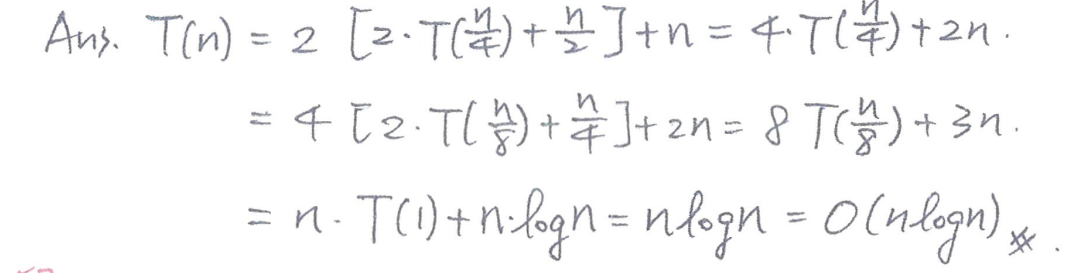 Ans. T(n) = 2 [2·T(n/4) + n/2] + n = 4·T(n/4) + 2n.
= 4 [2·T(n/8) + n/4] + 2n = 8 T(n/8) + 3n.
= n·T(1) + n·logn = nlogn = O(nlogn) ※.